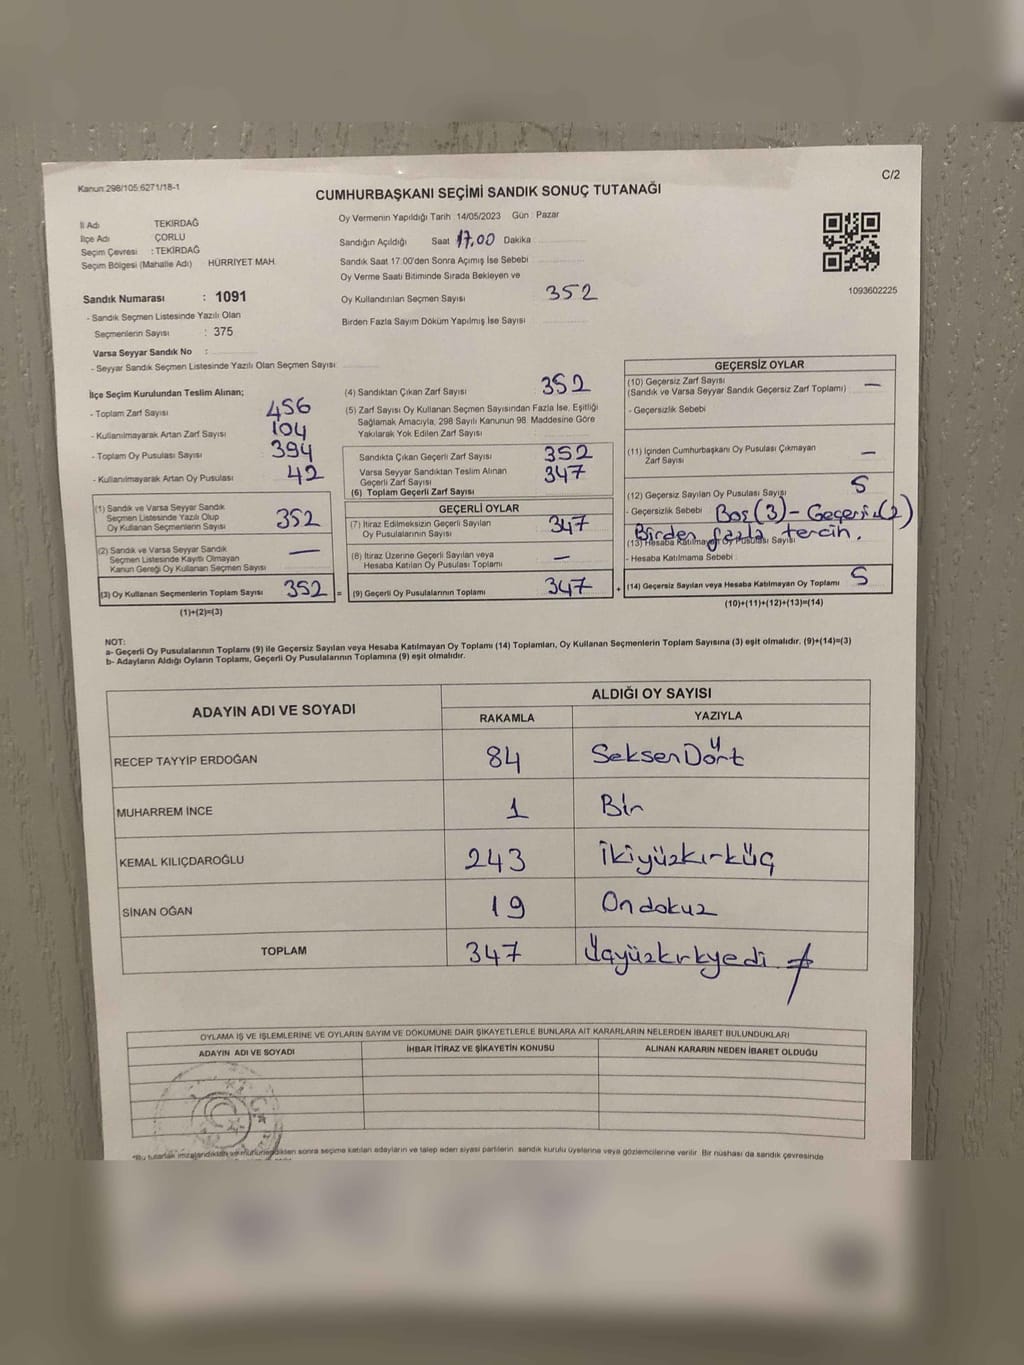 Kanun:298/105:6271/18-1
C/2
CUMHURBAŞKANI SEÇİMİ SANDIK SONUÇ TUTANAĞI
İl Adı TEKİRDAĞ
İlçe Adı ÇORLU
Seçim Çevresi : TEKİRDAĞ
Seçim Bölgesi (Mahalle Adı) HÜRRİYET MAH.
Sandık Numarası : 1091
- Sandık Seçmen Listesinde Yazılı Olan
Seçmenlerin Sayısı : 375
Varsa Seyyar Sandık No :
- Seyyar Sandık Seçmen Listesinde Yazılı Olan Seçmen Sayısı
Oy Vermenin Yapıldığı Tarih 14/05/2023 Gün : Pazar
Sandığın Açıldığı Saat 17.00 Dakika
Sandık Saat 17:00'den Sonra Açımış İse Sebebi
Oy Verme Saati Bitiminde Sırada Bekleyen ve
Oy Kullandırılan Seçmen Sayısı 352
Birden Fazla Sayım Döküm Yapılmış İse Sayısı
1093602225
İlçe Seçim Kurulundan Teslim Alınan;
- Toplam Zarf Sayısı 456
- Kullanılmayarak Artan Zarf Sayısı 104
- Toplam Oy Pusulası Sayısı 394
- Kullanılmayarak Artan Oy Pusulası 42
(1) Sandık ve Varsa Seyyar Sandık
Seçmen Listesinde Yazılı Olup
Oy Kullanan Seçmenlerin Sayısı 352
(2) Sandık ve Varsa Seyyar Sandık
Seçmen Listesinde Kayıtlı Olmayan
Kanun Gereği Oy Kullanan Seçmen Sayısı —
(3) Oy Kullanan Seçmenlerin Toplam Sayısı 352 =
(1)+(2)=(3)
(4) Sandıktan Çıkan Zarf Sayısı 352
(5) Zarf Sayısı Oy Kullanan Seçmen Sayısından Fazla İse, Eşitliği
Sağlamak Amacıyla, 298 Sayılı Kanunun 98. Maddesine Göre
Yakılarak Yok Edilen Zarf Sayısı
Sandıkta Çıkan Geçerli Zarf Sayısı 352
Varsa Seyyar Sandıktan Teslim Alınan
Geçerli Zarf Sayısı 347
(6) Toplam Geçerli Zarf Sayısı
GEÇERLİ OYLAR
(7) İtiraz Edilmeksizin Geçerli Sayılan
Oy Pusulalarının Sayısı 347
(8) İtiraz Üzerine Geçerli Sayılan veya
Hesaba Katılan Oy Pusulası Toplamı —
(9) Geçerli Oy Pusulalarının Toplamı 347 +
GEÇERSİZ OYLAR
(10) Geçersiz Zarf Sayısı
(Sandık ve Varsa Seyyar Sandık Geçersiz Zarf Toplamı) —
- Geçersizlik Sebebi
(11) İçinden Cumhurbaşkanı Oy Pusulası Çıkmayan
Zarf Sayısı —
(12) Geçersiz Sayılan Oy Pusulası Sayısı 5
- Geçersizlik Sebebi Boş (3) - Geçersiz (2)
Birden fazla tercih.
(13) Hesaba Katılmayan Oy Pusulası Sayısı
- Hesaba Katılmama Sebebi
(14) Geçersiz Sayılan veya Hesaba Katılmayan Oy Toplamı 5
(10)+(11)+(12)+(13)=(14)
NOT:
a- Geçerli Oy Pusulalarının Toplamı (9) ile Geçersiz Sayılan veya Hesaba Katılmayan Oy Toplamı (14) Toplamları, Oy Kullanan Seçmenlerin Toplam Sayısına (3) eşit olmalıdır. (9)+(14)=(3)
b- Adayların Aldığı Oyların Toplamı, Geçerli Oy Pusulalarının Toplamına (9) eşit olmalıdır.
ADAYIN ADI VE SOYADI ALDIĞI OY SAYISI
RAKAMLA YAZIYLA
RECEP TAYYİP ERDOĞAN 84 SeksenDört
MUHARREM İNCE 1 Bir
KEMAL KILIÇDAROĞLU 243 İkiyüzkırküç
SİNAN OĞAN 19 Ondokuz
TOPLAM 347 Üçyüzkırkyedi
OYLAMA İŞ VE İŞLEMLERİNE VE OYLARIN SAYIM VE DÖKÜMÜNE DAİR ŞİKAYETLERLE BUNLARA AİT KARARLARIN NELERDEN İBARET BULUNDUKLARI
ADAYIN ADI VE SOYADI İHBAR İTİRAZ VE ŞİKAYETİN KONUSU ALINAN KARARIN NEDEN İBARET OLDUĞU
*Bu tutanak imzalandıktan ve mühürlendikten sonra seçime katılan adayların ve talep eden siyasi partilerin sandık kurulu üyelerine veya gözlemcilerine verilir. Bir nüshası da sandık çevresinde